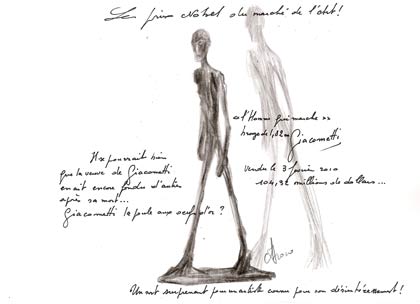 Le prix Nobel du marché de l'art !
« l'Homme qui marche »
bronze de 1,82 m
Giacometti
vendu le 3 février 2010
104,32 millions de dollars...
Il se pourrait bien
que la veuve de Giacometti
en ait encore fondu d'autres
après sa mort...
Giacometti la poule aux oeufs d'or ?
Un sort surprenant pour un artiste connu pour son désintéressement !